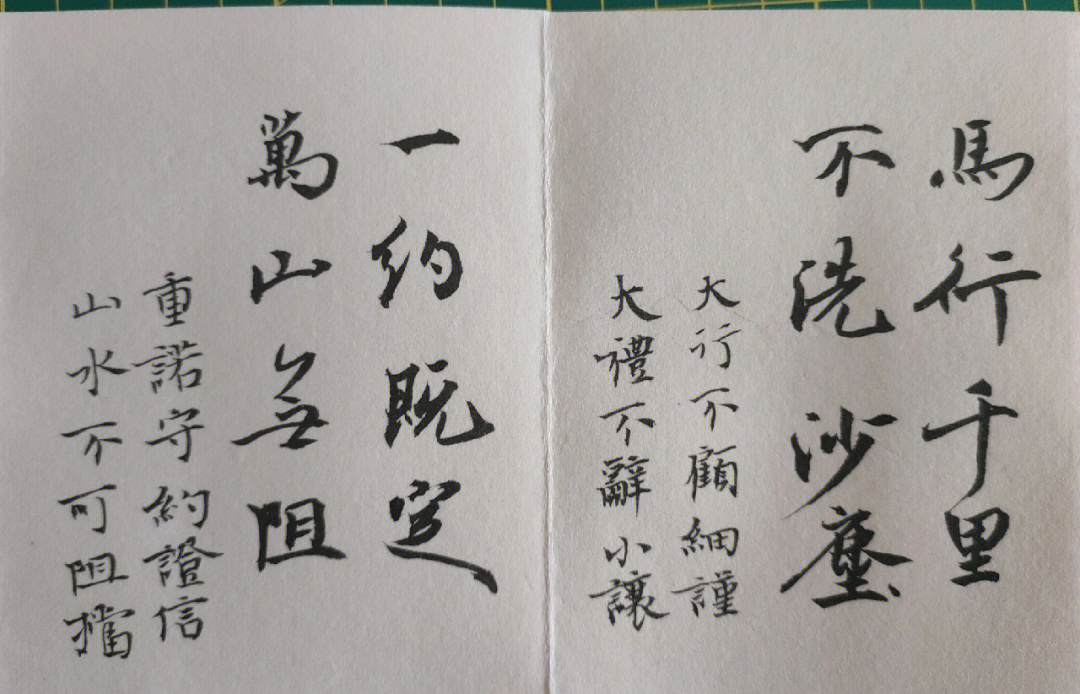 馬行千里
不洗沙塵
大行不顧細謹
大禮不辭小讓
一约既定
萬山無阻
重諾守約證信
山水不可阻擋